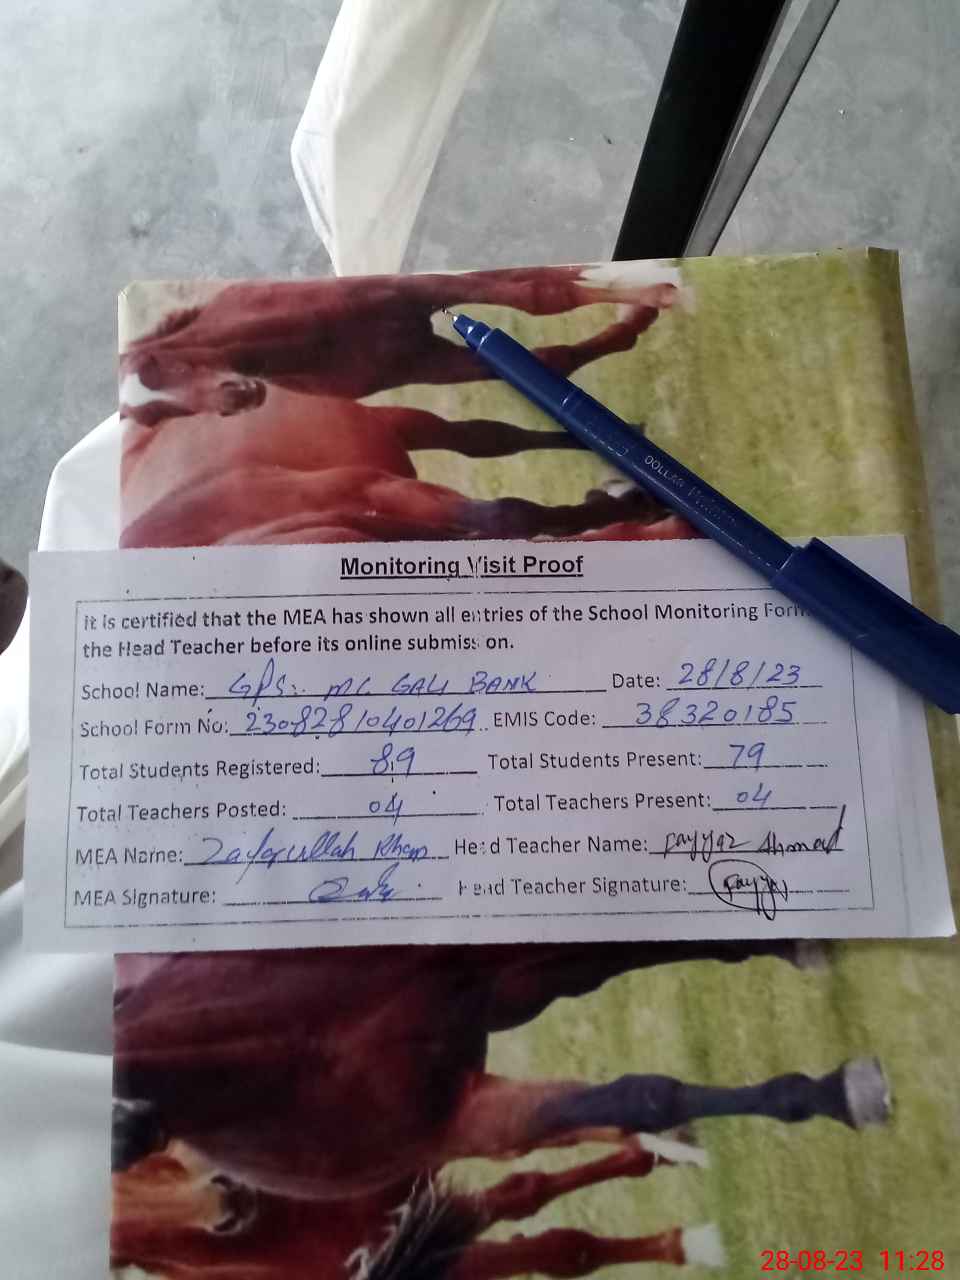 Monitoring Visit Proof
it is certified that the MEA has shown all entries of the School Monitoring Form
the Head Teacher before its online submission.
School Name: GPS: MC GALI BANK Date: 28/8/23
School Form No: 23082810401269 EMIS Code: 38320185
Total Students Registered: 89 Total Students Present: 79
Total Teachers Posted: 04 Total Teachers Present: 04
MEA Name: Zafarullah Khan Head Teacher Name: Fayyaz Ahmad
MEA Signature: Head Teacher Signature: Fayyaz
DOLLAR
28-08-23 11:28